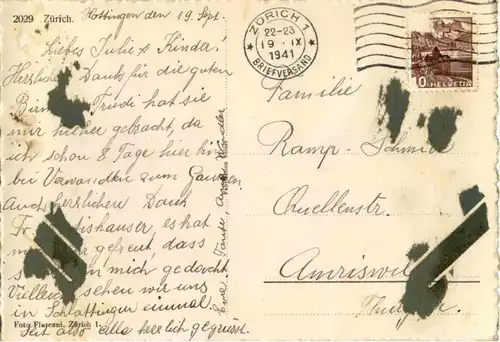 2029 Zürich.
Hottingen den 19. Sept.
Liebes Julie & Kinder!
Herzlichen Dank für die guten
Trudi hat sie
mir hieher gebracht, da
ich schon 8 Tage hier bin
bei Verwandten zum
Auch herzlichen Dank
es hat
gefreut, dass
mich gedacht.
sehen wir uns
in Schlattingen einmal.
Seit also alle herzlich gegrüsst.
Eure Tante, Anna
Foto Zürich 1.
ZÜRICH 1
22-23
19 IX
1941
BRIEFVERSAND
10 HELVETIA
Familie
Ramp - Schmid
Quellenstr.
Amriswil